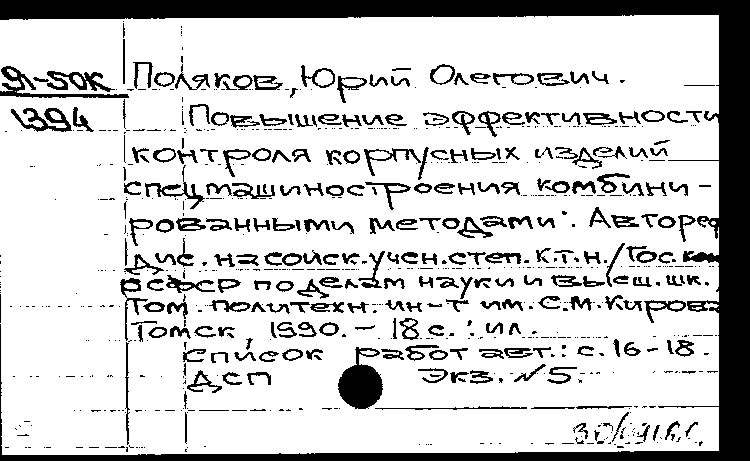 91-50К Поляков, Юрий Олегович.
1394 Повышение эффективности
контроля корпусных изделий
спецмашиностроения комбини-
рованными методами: Автореф
дис. на соиск. учен. степ. к.т.н. / Гос. ком
РСФСР по делам науки и высш. шк.,
Том. политехн. ин-т им. С.М. Кирова
Томск, 1990. - 18 с. : ил.
Список работ авт.: с. 16-18.
ДСП Экз. N 5.